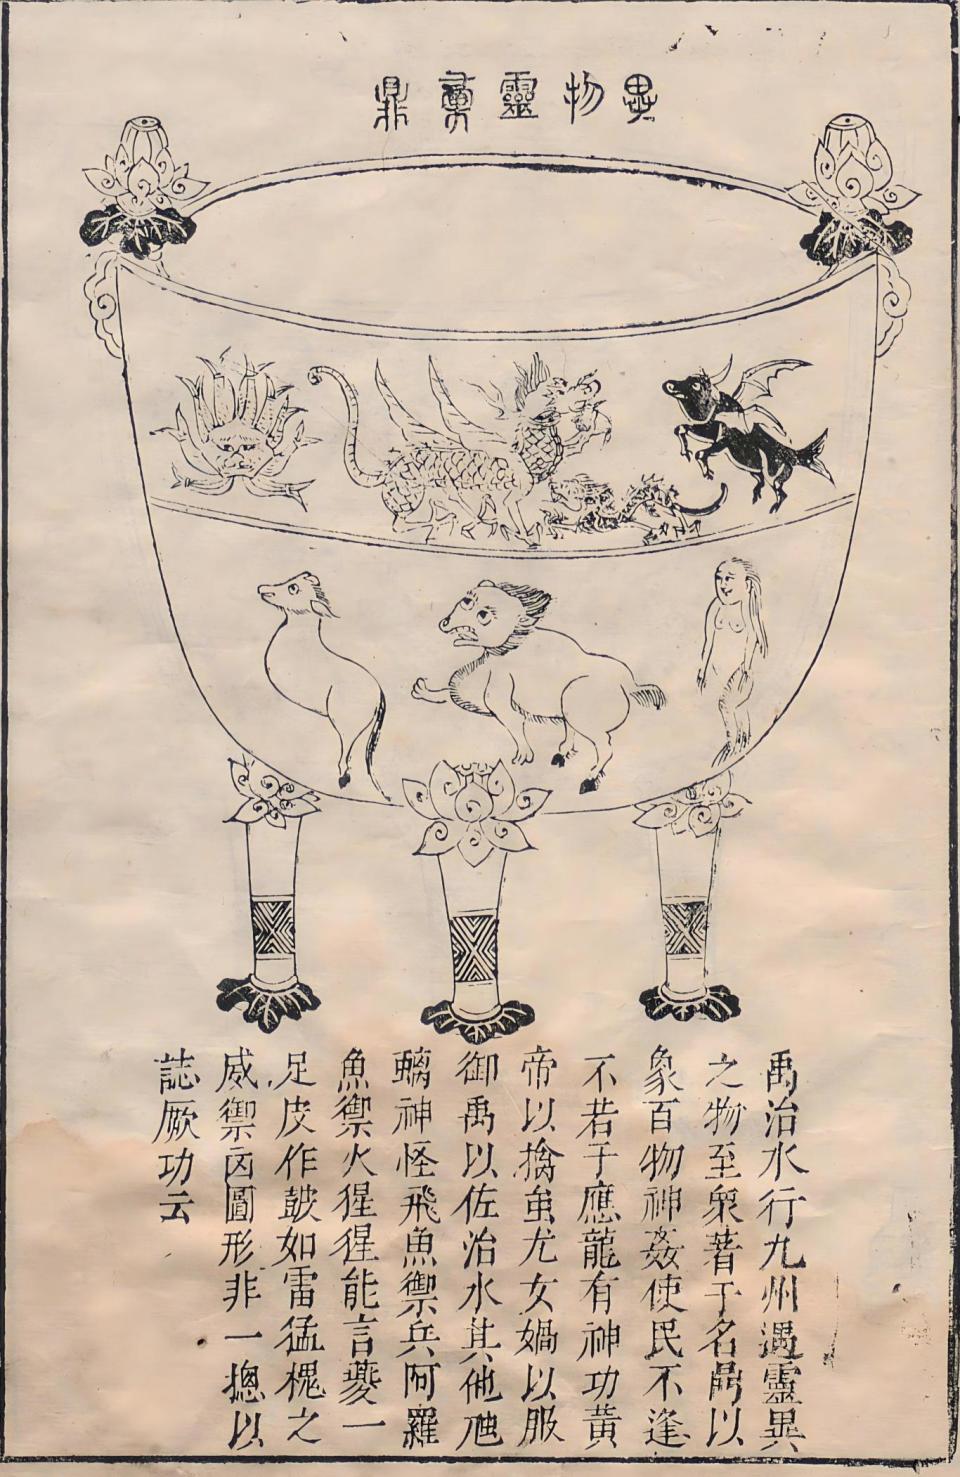 異物靈鼎
禹治水行九州遇靈異
之物至衆著于名鼎以
象百物神姦使民不逢
不若于應龍有神功黃
帝以擒蚩尤女媧以服
御禹以佐治水其他虺
螭神怪飛魚禦兵阿羅
魚禦火猩猩能言夔一
足皮作皷如雷猛槐之
威禦凶圖形非一摠以
誌厥功云